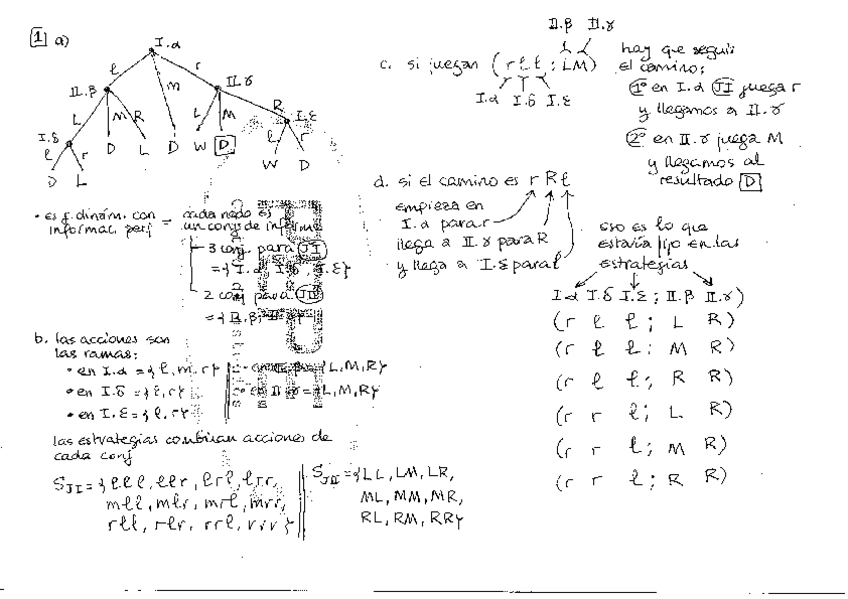 1 a)
I.α
l
m
r
II.β
II.γ
L
M
R
L
M
R
I.δ
I.ε
l
r
D
L
D
L
D
W
D
l
r
W
D
• es j. dinám. con informac. perf = cada nodo es un conj de inform
3 conj. para JI
= {I.α, I.δ, I.ε}
2 conj para JII
= {II.β, II.γ}
b. las acciones son
las ramas:
• en I.α = {l, m, r}
{L, M, R}
• en I.δ = {l, r}
• en II.γ = {L, M, R}
• en I.ε = {l, r}
las estrategias combinan acciones de
cada conj
SJI = {lll, llr, lrl, lrr,
mll, mlr, mrl, mrr,
rll, rlr, rrl, rrr}
SJII = {LL, LM, LR,
ML, MM, MR,
RL, RM, RR}
II.β II.γ
c. si juegan (rll; LM)
I.α I.δ I.ε
hay que seguir
el camino:
1º en I.α JI juega r
y llegamos a II.γ
2º en II.γ juega M
y llegamos al
resultado D
d. si el camino es r R l
empieza en
I.α para r
llega a II.γ para R
y llega a I.ε para l
eso es lo que
estaría fijo en las
estrategias
I.α I.δ I.ε; II.β II.γ)
(r l l; L R)
(r l l; M R)
(r l l; R R)
(r r l; L R)
(r r l; M R)
(r r l; R R)